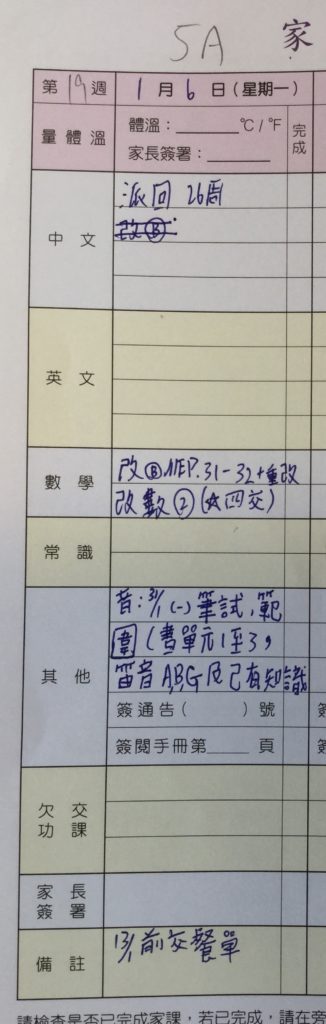 5A 家
第 19 週 1 月 6 日 (星期一)
量體溫 體溫：______℃/℉ 完成
家長簽署：______
中文 派回 26周
改Ⓑ
英文
數學 改Ⓑ NEP.31-32+重改
改數② (☆四交)
常識
其他 音：3/1 (一) 筆試，範
圍 (書單元1至3，
笛音 A,B,G 及已有知識
簽通告( )號
簽閱手冊第____頁
欠交功課
家長簽署
備註 13/1前交餐單
請檢查是否已完成家課，若已完成，請在旁